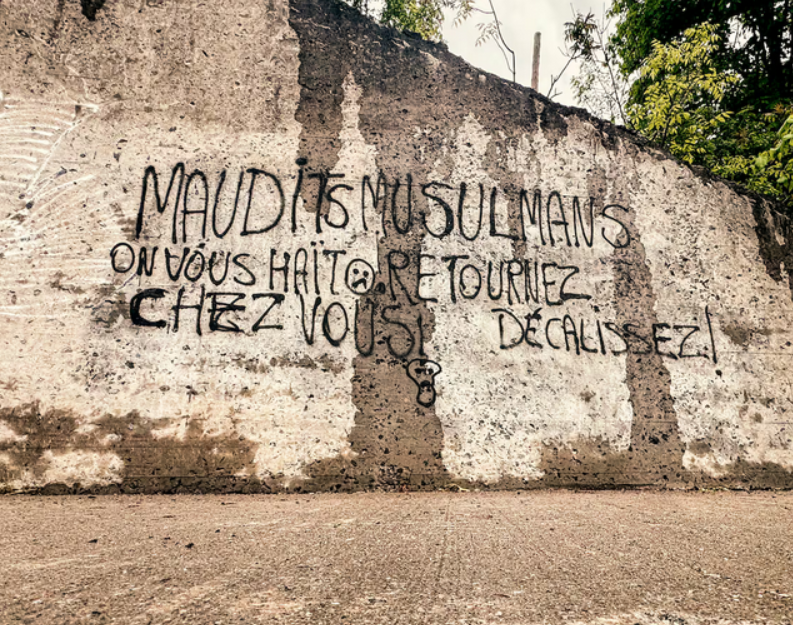 MAUDITS MUSULMANS
ON VOUS HAÏT. RETOURNEZ
CHEZ VOUS! DÉCALISSEZ!